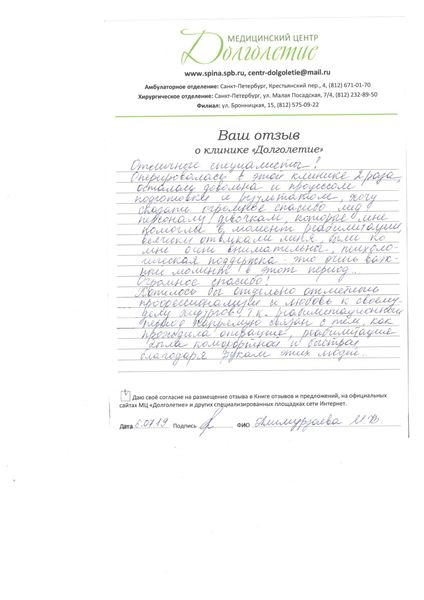 МЕДИЦИНСКИЙ ЦЕНТР
Долголетие
www.spina.spb.ru, centr-dolgoletie@mail.ru
Амбулаторное отделение: Санкт-Петербург, Крестьянский пер., 4, (812) 671-01-70
Хирургическое отделение: Санкт-Петербург, ул. Малая Посадская, 7/4, (812) 232-89-50
Филиал: ул. Бронницкая, 15, (812) 575-09-22
Ваш отзыв
о клинике «Долголетие»
Отличные специалисты!
Оперировалась в этой клинике 2 раза,
осталась довольна и процессом
подготовки и результатом, хочу
сказать огромное спасибо мед
персоналу, девочкам, которые мне
помогли в момент реабилитации,
всячески отвлекали меня, были ко
мне очень внимательны, психоло-
гическая поддержка - это очень важ-
ный момент в этот период.
Огромное спасибо!
Хотелось бы отдельно отметить
профессионализм и любовь к своему
делу хирургов, т.к. реабилитационный
период напрямую связан с тем, как
проходила операция, реабилитация
была комфортная и быстрая
благодаря рукам этих людей.
Даю своё согласие на размещение отзыва в Книге отзывов и предложений, на официальных
сайтах МЦ «Долголетие» и других специализированных площадках сети Интернет.
Дата 6.07.19 Подпись ФИО И.В.